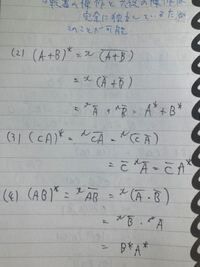 (2) (A+B)* = ᵗ(A̅+̅B̅)
= ᵗ(A̅+B̅)
= ᵗA̅ + ᵗB̅ = A*+B*
(3) (cA)* = ᵗc̅A̅ = ᵗ(c̅ A̅)
= c̅ ᵗA̅ = c̅ A*
(4) (AB)* = ᵗA̅B̅ = ᵗ(A̅・B̅)
= ᵗB̅・ᵗA̅
= B*A*